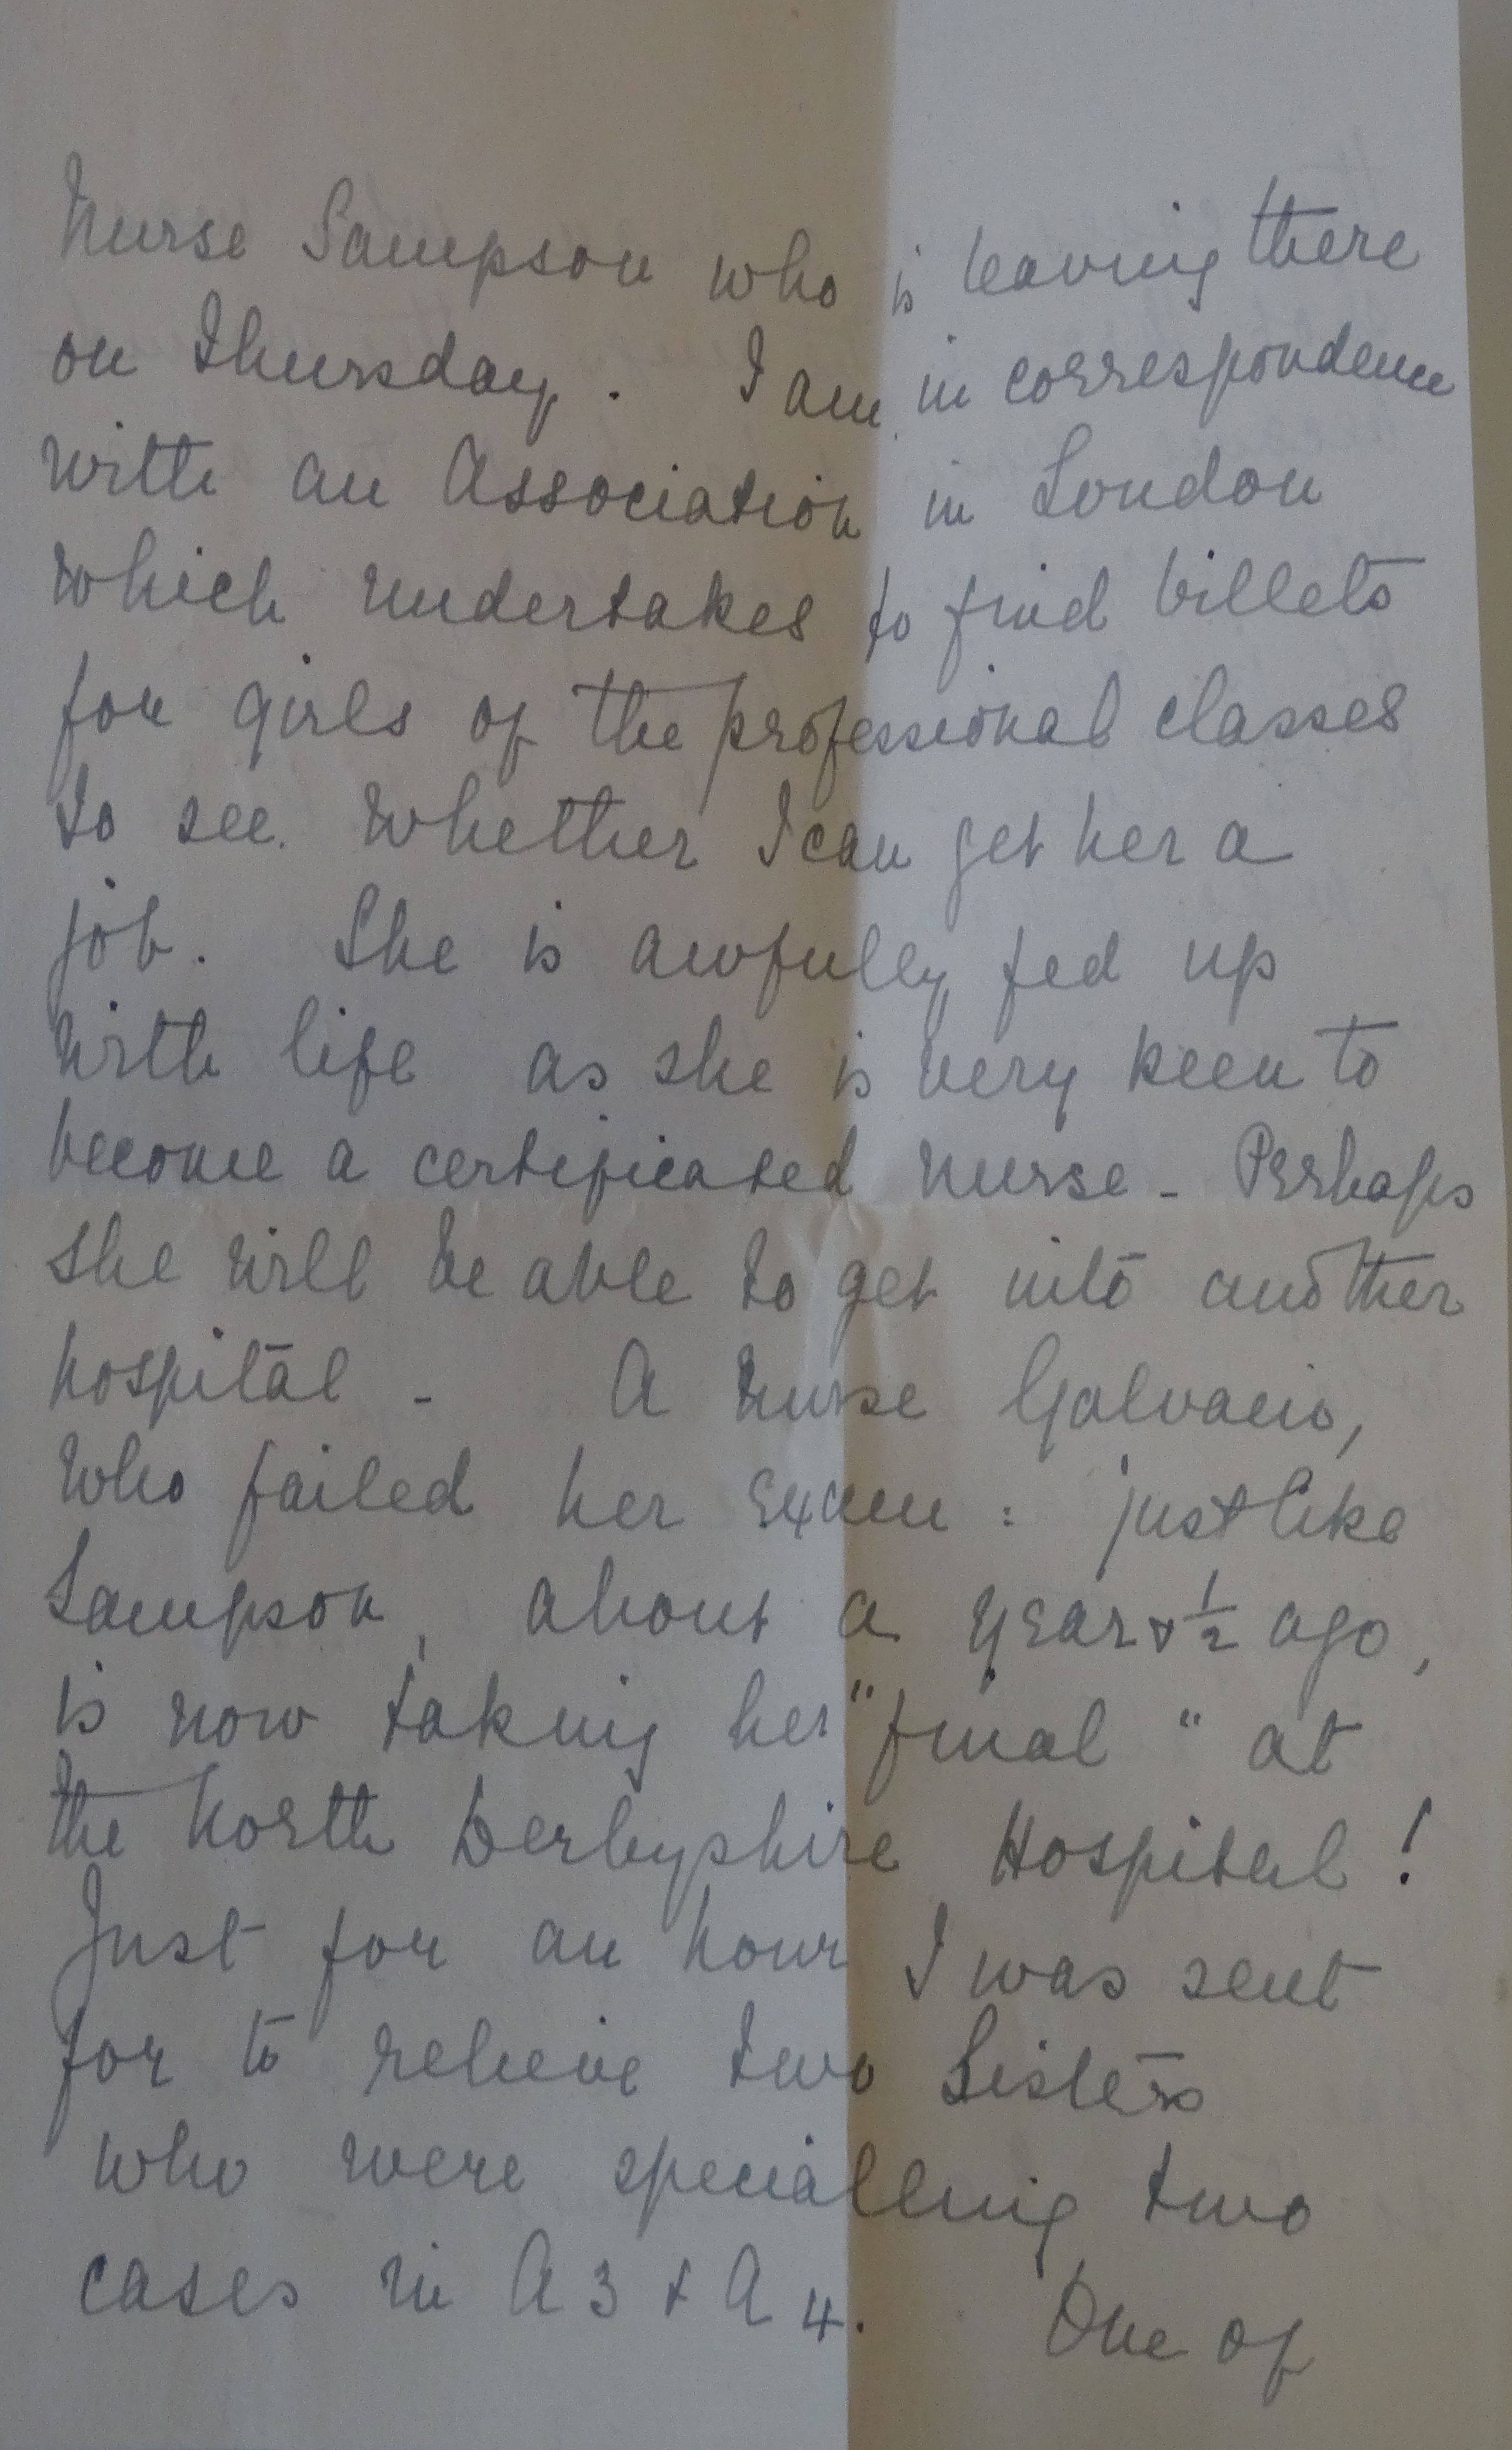 Nurse Sampson who is leaving there
on Thursday. I am in correspondence
with an Association in London
which undertakes to find billets
for girls of the professional classes
to see. whether I can get her a
job. She is awfully fed up
with life as she is very keen to
become a certificated nurse - Perhaps
she will be able to get into another
hospital - A Nurse
who failed her Exam : just like
Sampson, about a year & ½ ago,
is now taking her "final" at
the North Derbyshire Hospital!
Just for an hour I was sent
for to relieve two Sisters
who were specialling two
cases in A3 & A4. One of